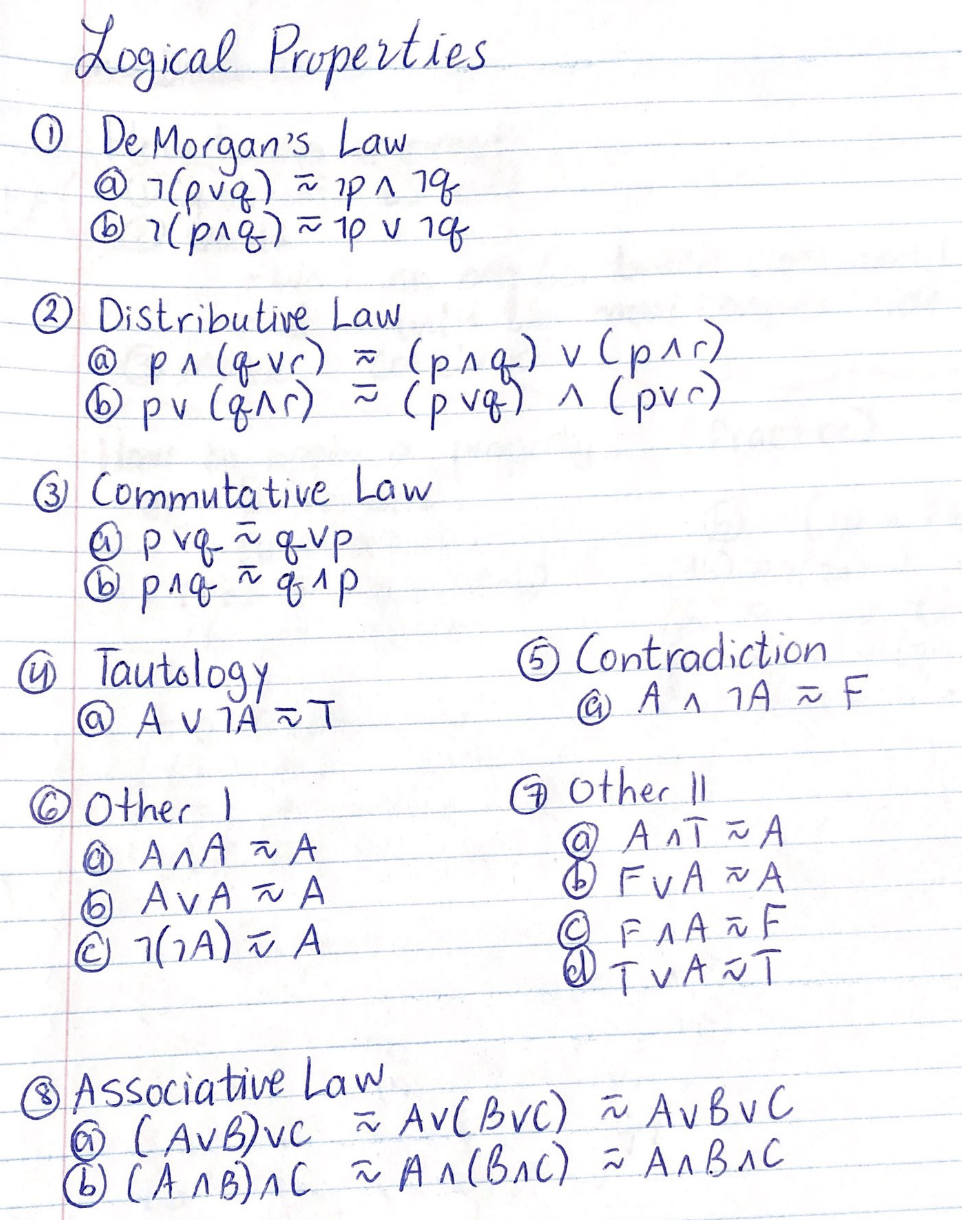 Logical Properties
① DeMorgan's Law
ⓐ ¬(p∨q) ≂ ¬p ∧ ¬q
ⓑ ¬(p∧q) ≂ ¬p ∨ ¬q
② Distributive Law
ⓐ p ∧ (q∨r) ≂ (p∧q) ∨ (p∧r)
ⓑ p∨ (q∧r) ≂ (p∨q) ∧ (p∨r)
③ Commutative Law
ⓐ p∨q ≂ q∨p
ⓑ p∧q ≂ q∧p
④ Tautology
ⓐ A ∨ ¬A ≂ T
⑤ Contradiction
ⓐ A ∧ ¬A ≂ F
⑥ Other I
ⓐ A∧A ≂ A
ⓑ A∨A ≂ A
ⓒ ¬(¬A) ≂ A
⑦ Other II
ⓐ A∧T ≂ A
ⓑ F∨A ≂ A
ⓒ F∧A ≂ F
ⓓ T∨A ≂ T
⑧ Associative Law
ⓐ (A∨B)∨C ≂ A∨(B∨C) ≂ A∨B∨C
ⓑ (A∧B)∧C ≂ A∧(B∧C) ≂ A∧B∧C